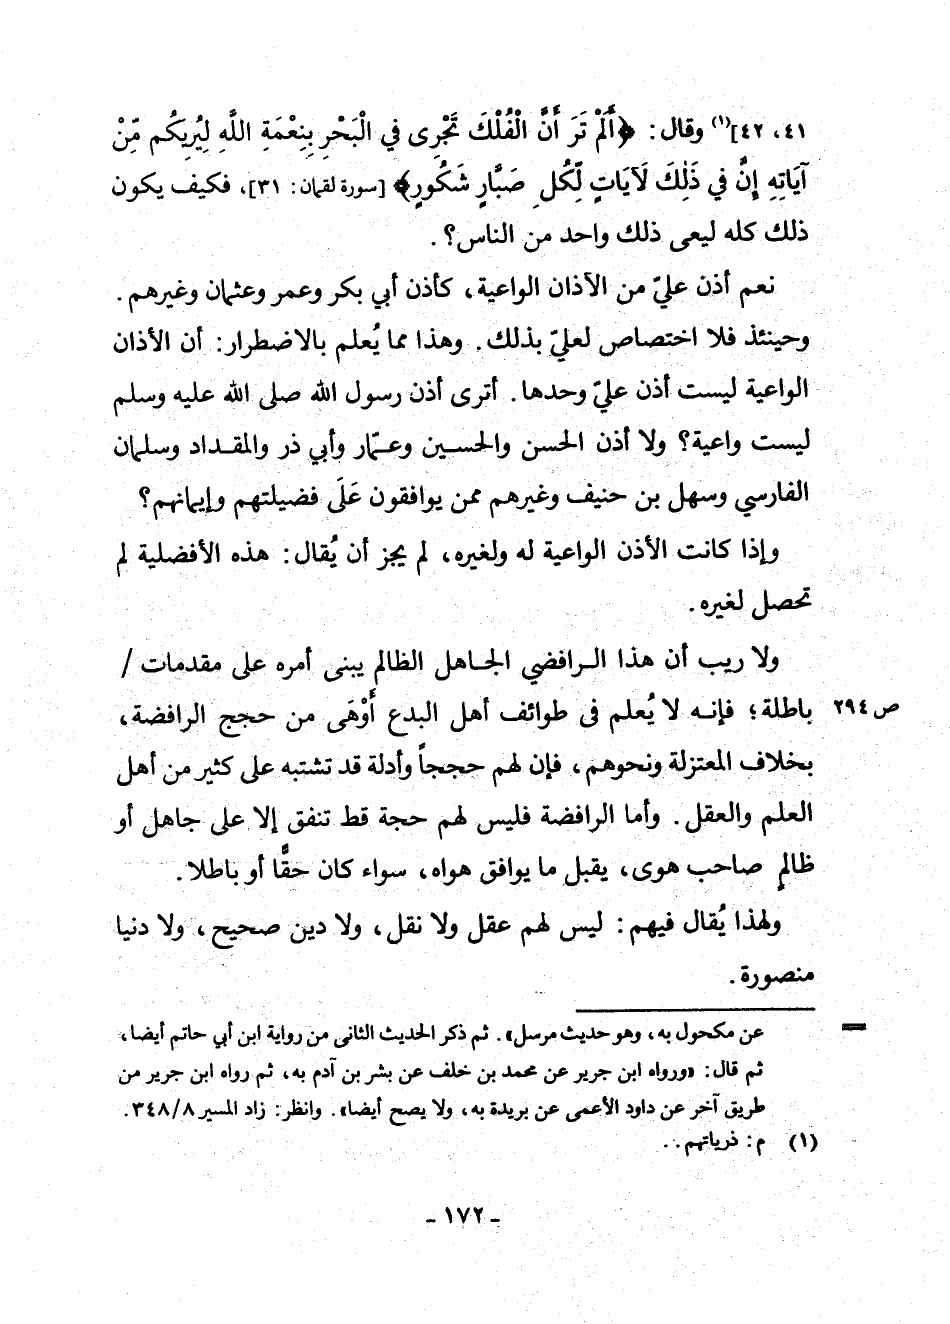 ٤١، ٤٢](١) وقال: ﴿أَلَمْ تَرَ أَنَّ الْفُلْكَ تَجْرِى فِي الْبَحْرِ بِنِعْمَةِ اللَّهِ لِيُرِيكُم مِّنْ
آيَاتِهِ إِنَّ فِي ذَلِكَ لَآيَاتٍ لِّكُلِّ صَبَّارٍ شَكُورٍ﴾ [سورة لقمان: ٣١]، فكيف يكون
ذلك كله ليعى ذلك واحد من الناس؟.
نعم أذن عليّ من الآذان الواعية، كأذن أبي بكر وعمر وعثمان وغيرهم.
وحينئذ فلا اختصاص لعليّ بذلك. وهذا مما يُعلم بالاضطرار: أن الأذان
الواعية ليست أذن عليّ وحدها. أترى أذن رسول الله صلى الله عليه وسلم
ليست واعية؟ ولا أذن الحسن والحسين وعمّار وأبي ذر والمقداد وسلمان
الفارسي وسهل بن حنيف وغيرهم ممن يوافقون عَلَى فضيلتهم وإيمانهم؟
وإذا كانت الأذن الواعية له ولغيره، لم يجز أن يُقال: هذه الأفضلية لم
تحصل لغيره.
ولا ريب أن هذا الرافضي الجاهل الظالم يبنى أمره على مقدمات /
باطلة؛ فإنه لا يُعلم فى طوائف أهل البدع أَوْهَى من حجج الرافضة، ص ٢٩٤
بخلاف المعتزلة ونحوهم، فإن لهم حججاً وأدلة قد تشتبه على كثير من أهل
العلم والعقل. وأما الرافضة فليس لهم حجة قط تنفق إلا على جاهل أو
ظالمٍ صاحب هوى، يقبل ما يوافق هواه، سواء كان حقًّا أو باطلا.
ولهذا يُقال فيهم: ليس لهم عقل ولا نقل، ولا دين صحيح، ولا دنيا
منصورة.
= عن مكحول به، وهو حديث مرسل». ثم ذكر الحديث الثانى من رواية ابن أبي حاتم أيضا،
ثم قال: «ورواه ابن جرير عن محمد بن خلف عن بشر بن آدم به، ثم رواه ابن جرير من
طريق آخر عن داود الأعمى عن بريدة به، ولا يصح أيضا». وانظر: زاد المسير ٣٤٨/٨.
(١) م: ذرياتهم..
- ١٧٢ -